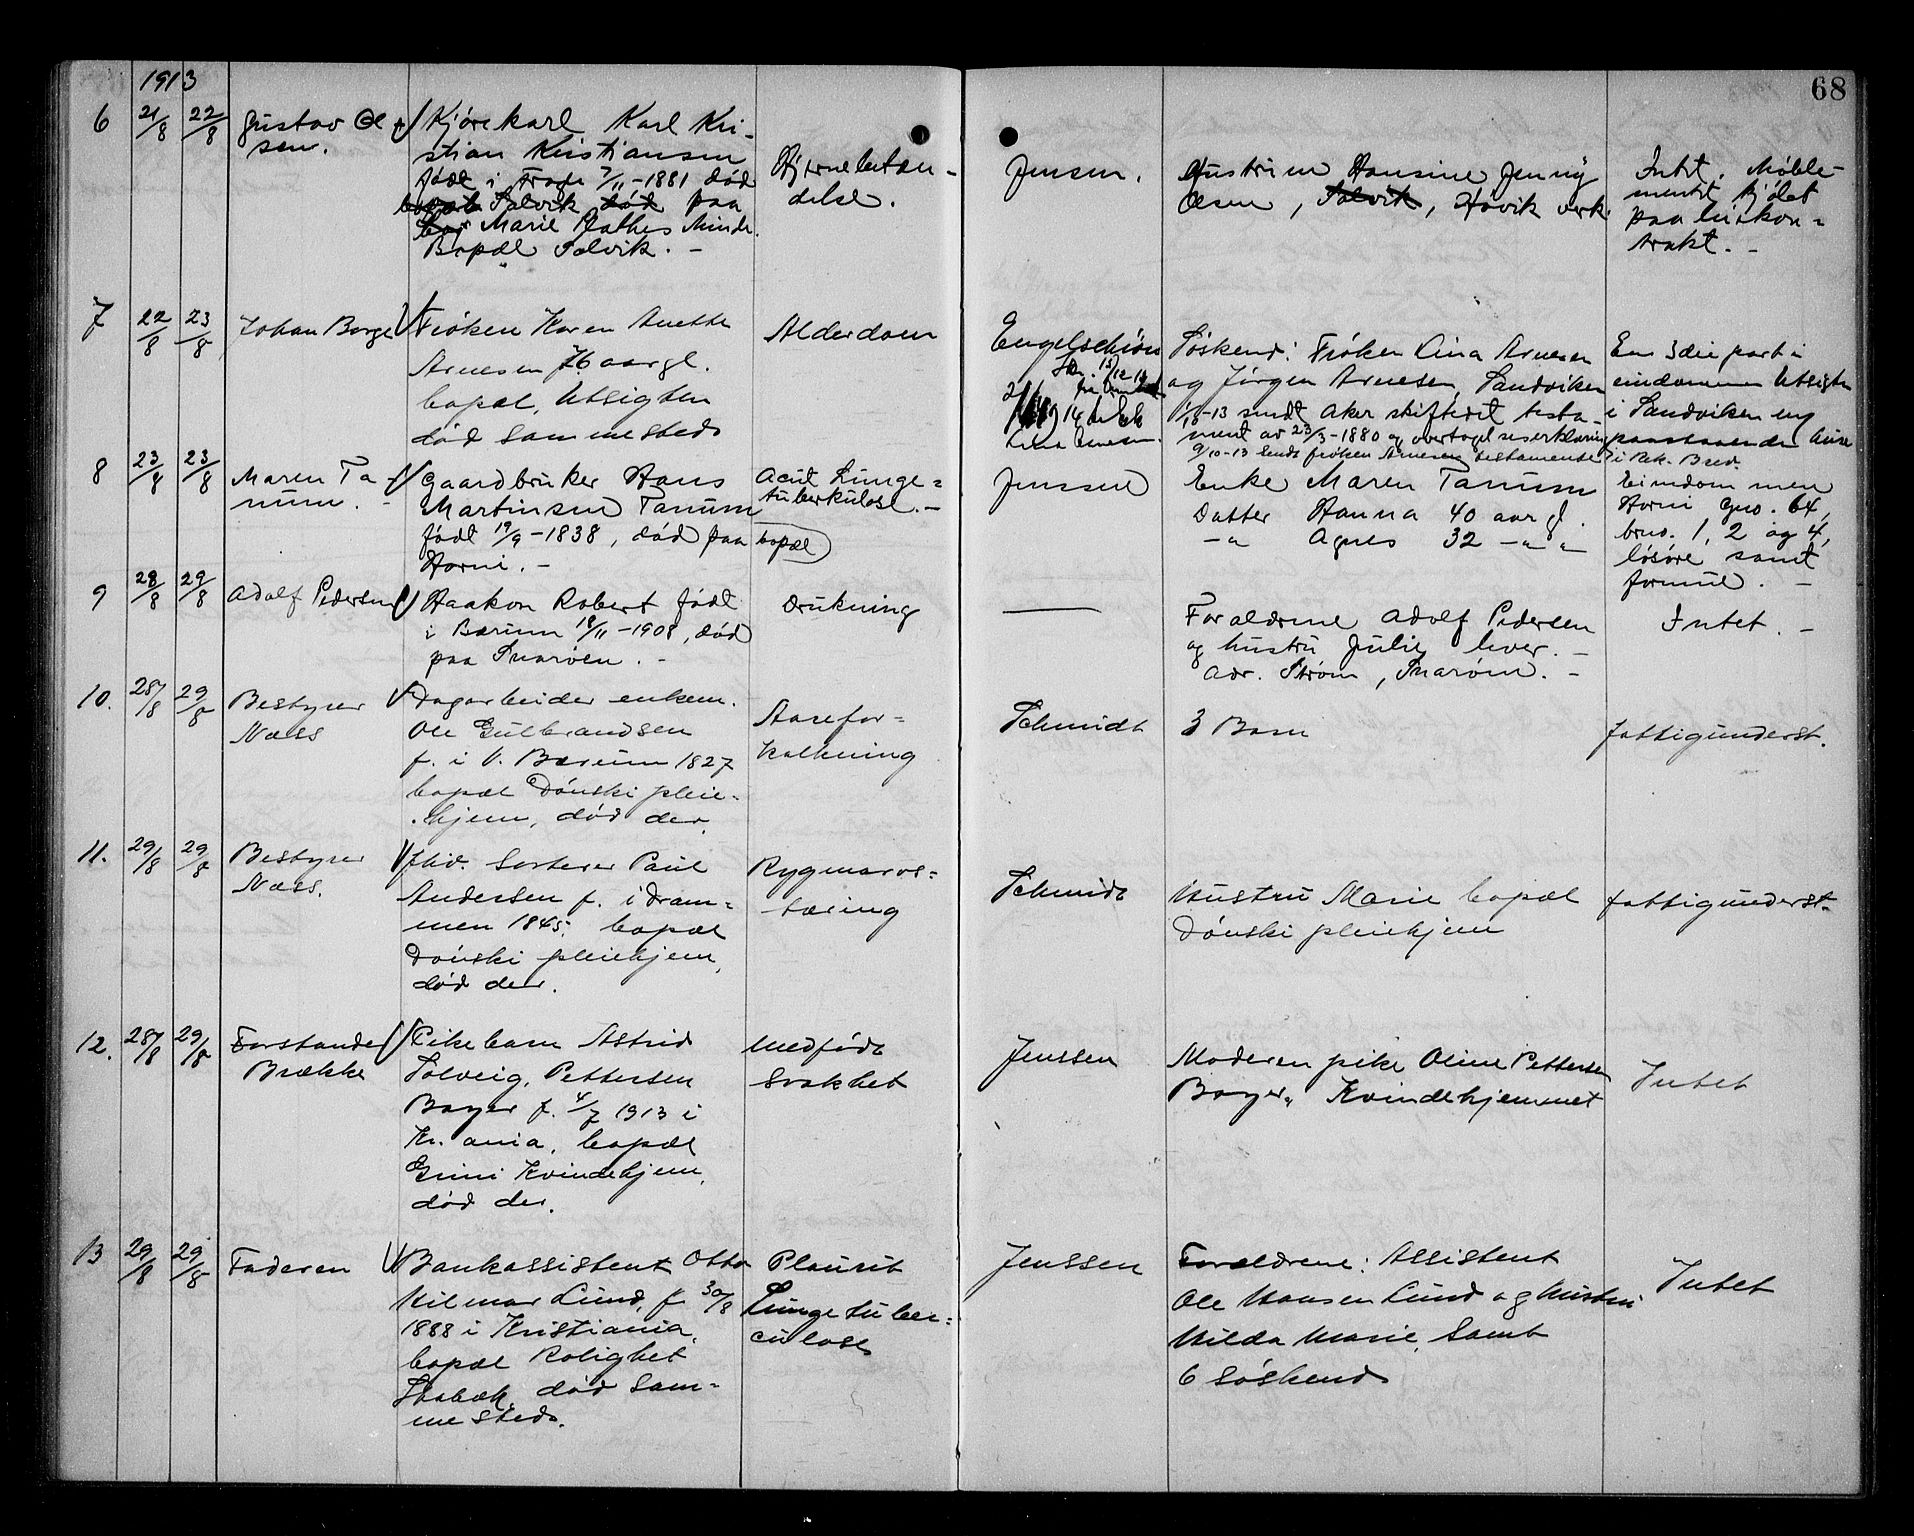 1913
68
6 21/8 22/8 Gustav Ol-
sen.
Kjørekarl Karl Kri-
stian Kristiansen
født i 7/11-1881 død
bopæl Solvik død paa
Marie Plathes Minde.
Bopæl Solvik. -
Hjernebetæn-
delse.
Jensen.
Hustruen Hansine Jenny
Olsen, Solvik, Høvik verk
Intet. Møble-
mentet kjøbt
paa leiekon=
trakt. -
7 22/8 23/8 Johan Borge
Frøken Karen Anette
Arnesen 76 aargl.
bopæl, Utsigten
død sammesteds
Alderdom
Engelschiøn
15/12 14
Søskend: Frøken Lina Arnesen
og Jørgen Arnesen, Sandviken
-13 sendt Aker skifteret testa-
ment av 23/3-1880 og overtagelseserklæring
9/10-13 sendt frøken Arnesen testamentet
En 3die part i
eiendommen Utsigten
i Sandviken og
paastaaende huse
i V. Bærum
8 23/8 23/8 Maren Ta-
num. -
Gaardbruker Hans
Martinsen Tanum
født 19/9-1838, død paa bopæl
Horni. -
Acut Lunge=
tuberkulose. -
Jenssen
Enke Maren Tanum
Datter Hanna 40 aar gl.
-"- Agnes 32 -"- "
Eiendommen
Horni gno. 64,
brno. 1, 2 og 4,
løsøre samt
formue. -
9 28/8 29/8 Adolf Pedersen
Haakon Robert født
i Bærum 18/11-1908, død
paa Snarøen. -
Drukning
Forældrene Adolf Pedersen
og hustru Julie lever. -
Adr. Strøm, Snarøen. -
Intet. -
10. 28/8 29/8 Bestyrer
Næss
Dagarbeider enkem.
Ole Gulbrandsen
f. i V. Bærum 1827
bopæl Dønski pleie-
hjem, død der.
Aarefor=
kalkning
Schmidt
3 Barn
fattigunderst.
11. 29/8 29/8 Bestyrer
Næss.
fhv. Sorterer Paul
Andersen f. i Dram=
men 1845. bopæl
Dønski pleiehjem,
død der.
Rygmarvs=
tæring
Schmidt
Hustru Marie bopæl
Dønski pleiehjem
fattigunderst.
12. 28/8 29/8 Forstander
Brække
Pikebarn Astrid
Solveig Pettersen
Bøyer f. 4/7 1913 i
Kr.ania, bopæl
Grini Kvindehjem,
død der.
Medfødt
Svakhet
Jenssen
Moderen pike Oline Pettersen
Bøyer, Kvindehjemmet
Intet
13 29/8 29/8 Faderen
Bankassistent Otto
Hilmar Lund, f 30/8
1888 i Kristiania,
bopæl Rolighet
Stabæk, død sam=
mesteds.
Pleurit
Lungetuber=
culose
Jenssen
Forældrene: Assistent
Ole Hansen Lund og hustru
Hilda Marie, samt
6 søskend
Intet